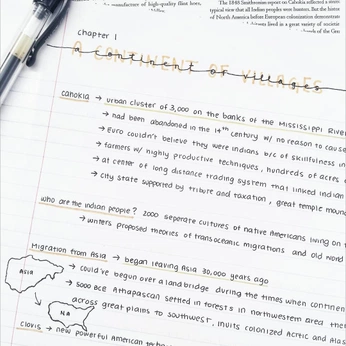 manufacturer of high-quality flint hoes,
The 1848 Smithsonian report on Cahokia reflected a
typical view that all Indian people were hunters. But the
of North America before European colonization demonstrate
lived in a great variety of societie
of the Gre
chapter 1
A CONTINENT OF VILLAGES
a continent of villages
cahokia → urban cluster of 3,000 on the banks of the MISSISSIPPI River
→ had been abandoned in the 14th century w/ no reason to cause
→ Euro couldn't believe they were indians b/c of skillfulness in
→ farmers w/ highly productive techniques, hundreds of acres
→ at center of long distance trading system that linked indian
→ city state supported by tribute and taxation, great temple mound
who are the indian people? 2000 seperate cultures of native americans living on
→ writers proposed theories of transoceanic migrations and old world
Migration from Asia → began leaving Asia 30,000 years ago
→ could've begun over a land bridge during the times when continen
→ 5000 BCE Athapascan settled in forests in northwestern area the
across great plains to southwest, inuits colonized Arctic and Alas
ASIA
NA
clovis → new powerful American